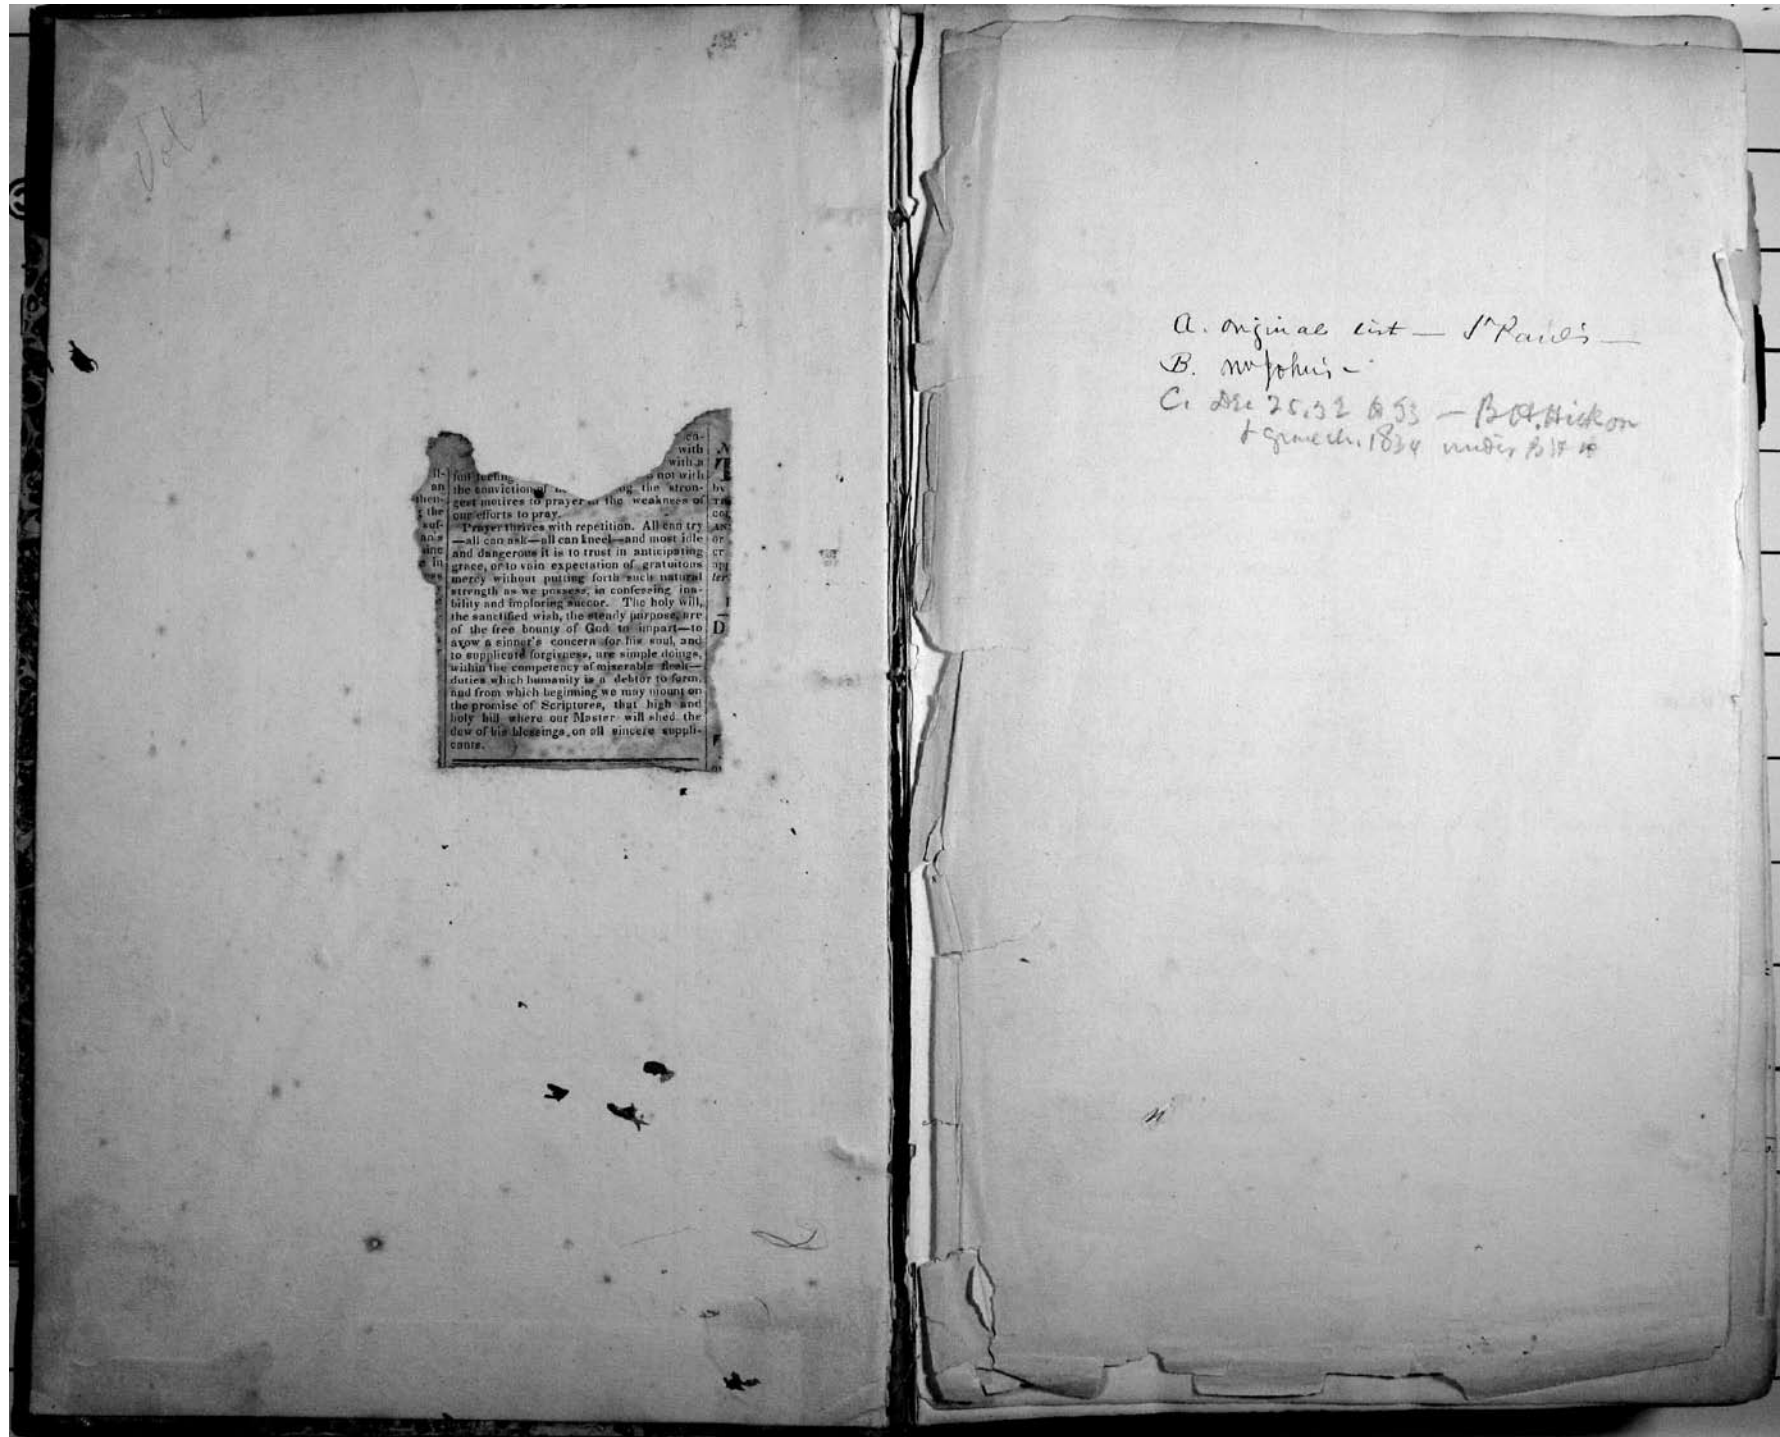 Vol 1
ca-
with
with a
full feeling not with
the conviction of the stron-
gest motives to prayer in the weakness of
our efforts to pray.
Prayer thrives with repetition. All can try
—all can ask—all can kneel—and most idle
and dangerous it is to trust in anticipating
grace, or to vain expectation of gratuitous
mercy without putting forth such natural
strength as we possess, in confessing ina-
bility and imploring succor. The holy will,
the sanctified wish, the steady purpose, are
of the free bounty of God to impart—to
avow a sinner's concern for his soul, and
to supplicate forgivness, are simple doings,
within the competency of miserable flesh—
duties which humanity is a debtor to form,
and from which beginning we may mount on
the promise of Scriptures, that high and
holy hill where our Master will shed the
dew of his blessings, on all sincere suppli-
cants.
ll-
an
then-
the
suf-
an's
ine
In
T
by
or
cr
app
ter
D
A. original list — St Paul's —
B. no John's —
C. Dec 25, 32 — B H. Hickox
1834 under B H H